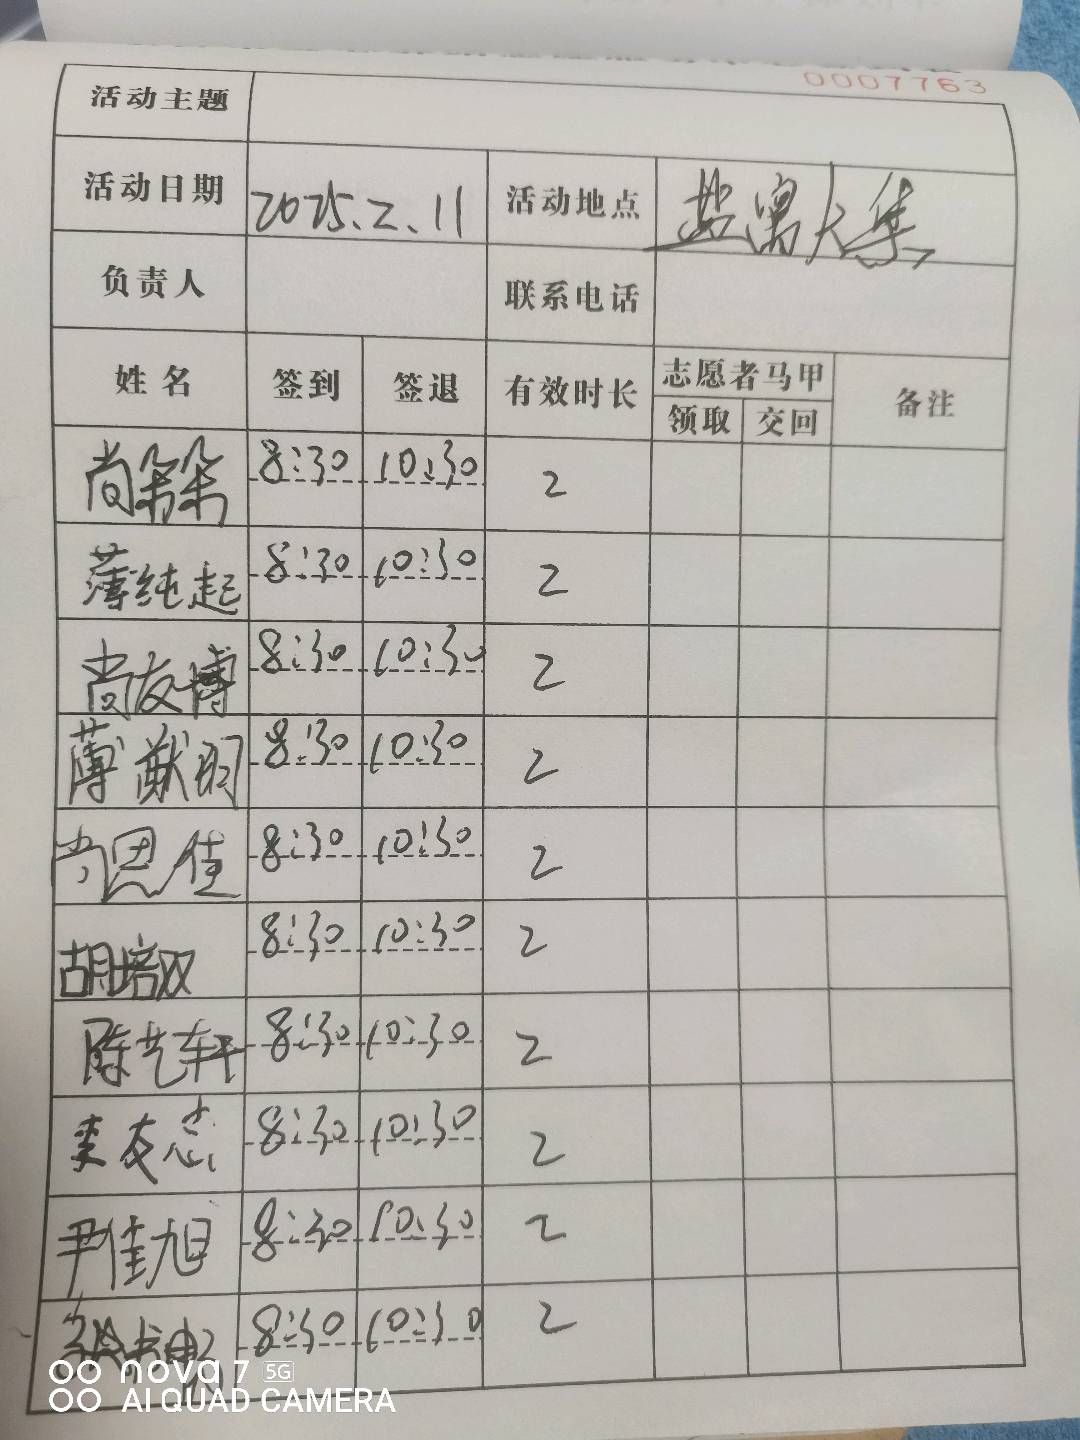 0007763
活动主题
活动日期 2025.2.11 活动地点 盐窝大集
负责人 联系电话
姓名 签到 签退 有效时长 志愿者马甲 备注
领取 交回
尚朵朵 8:30 10:30 2
薄纯起 8:30 10:30 2
尚友博 8:30 10:30 2
薄猷羽 8:30 10:30 2
尚恩佳 8:30 10:30 2
胡培双 8:30 10:30 2
陈艺轩 8:30 10:30 2
栾友志 8:30 10:30 2
尹佳旭 8:30 10:30 2
8:30 10:30 2
nova 7 5G
AI QUAD CAMERA